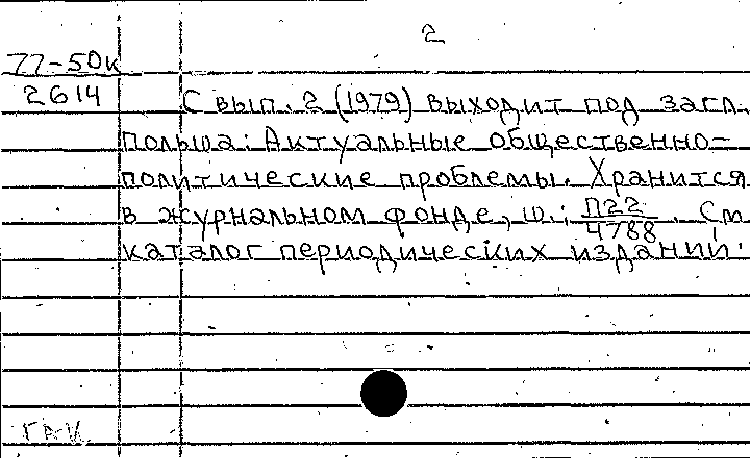 2
77-50к
2614
С вып. 2 (1979) выходит под загл.
Польша: Актуальные общественно-
политические проблемы. Хранится
в журнальном фонде, ш.: П22/4788. См
каталог периодических изданий.